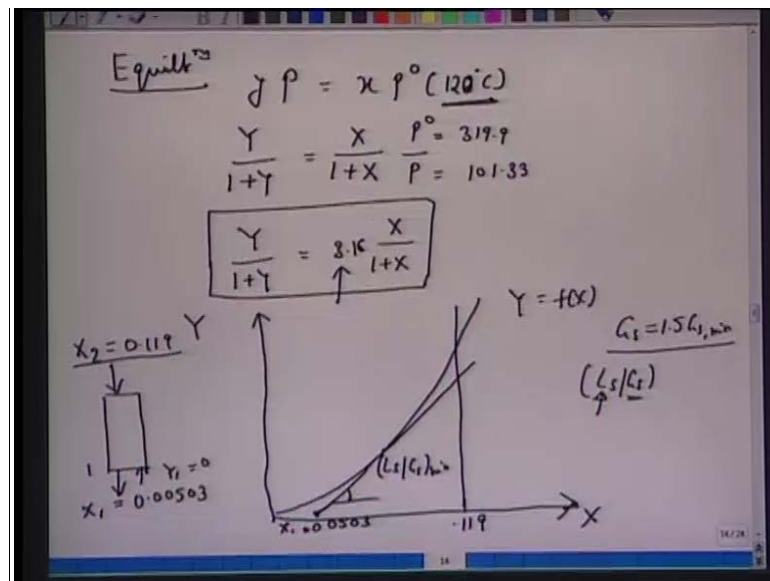 Equilbᵐ
y P = x P° (120°C)
Y/1+Y = X/1+X P° = 319.9 / P = 101.33
Y/1+Y = 3.16 X/1+X
Y = f(X)
X₂ = 0.119
Y
Gs = 1.5 Gs,min
(Ls/Gs)
1
Y₁ = 0
X₁ = 0.00503
(Ls/Gs)min
X₁ = 0.00503
.119
X
14/24
14